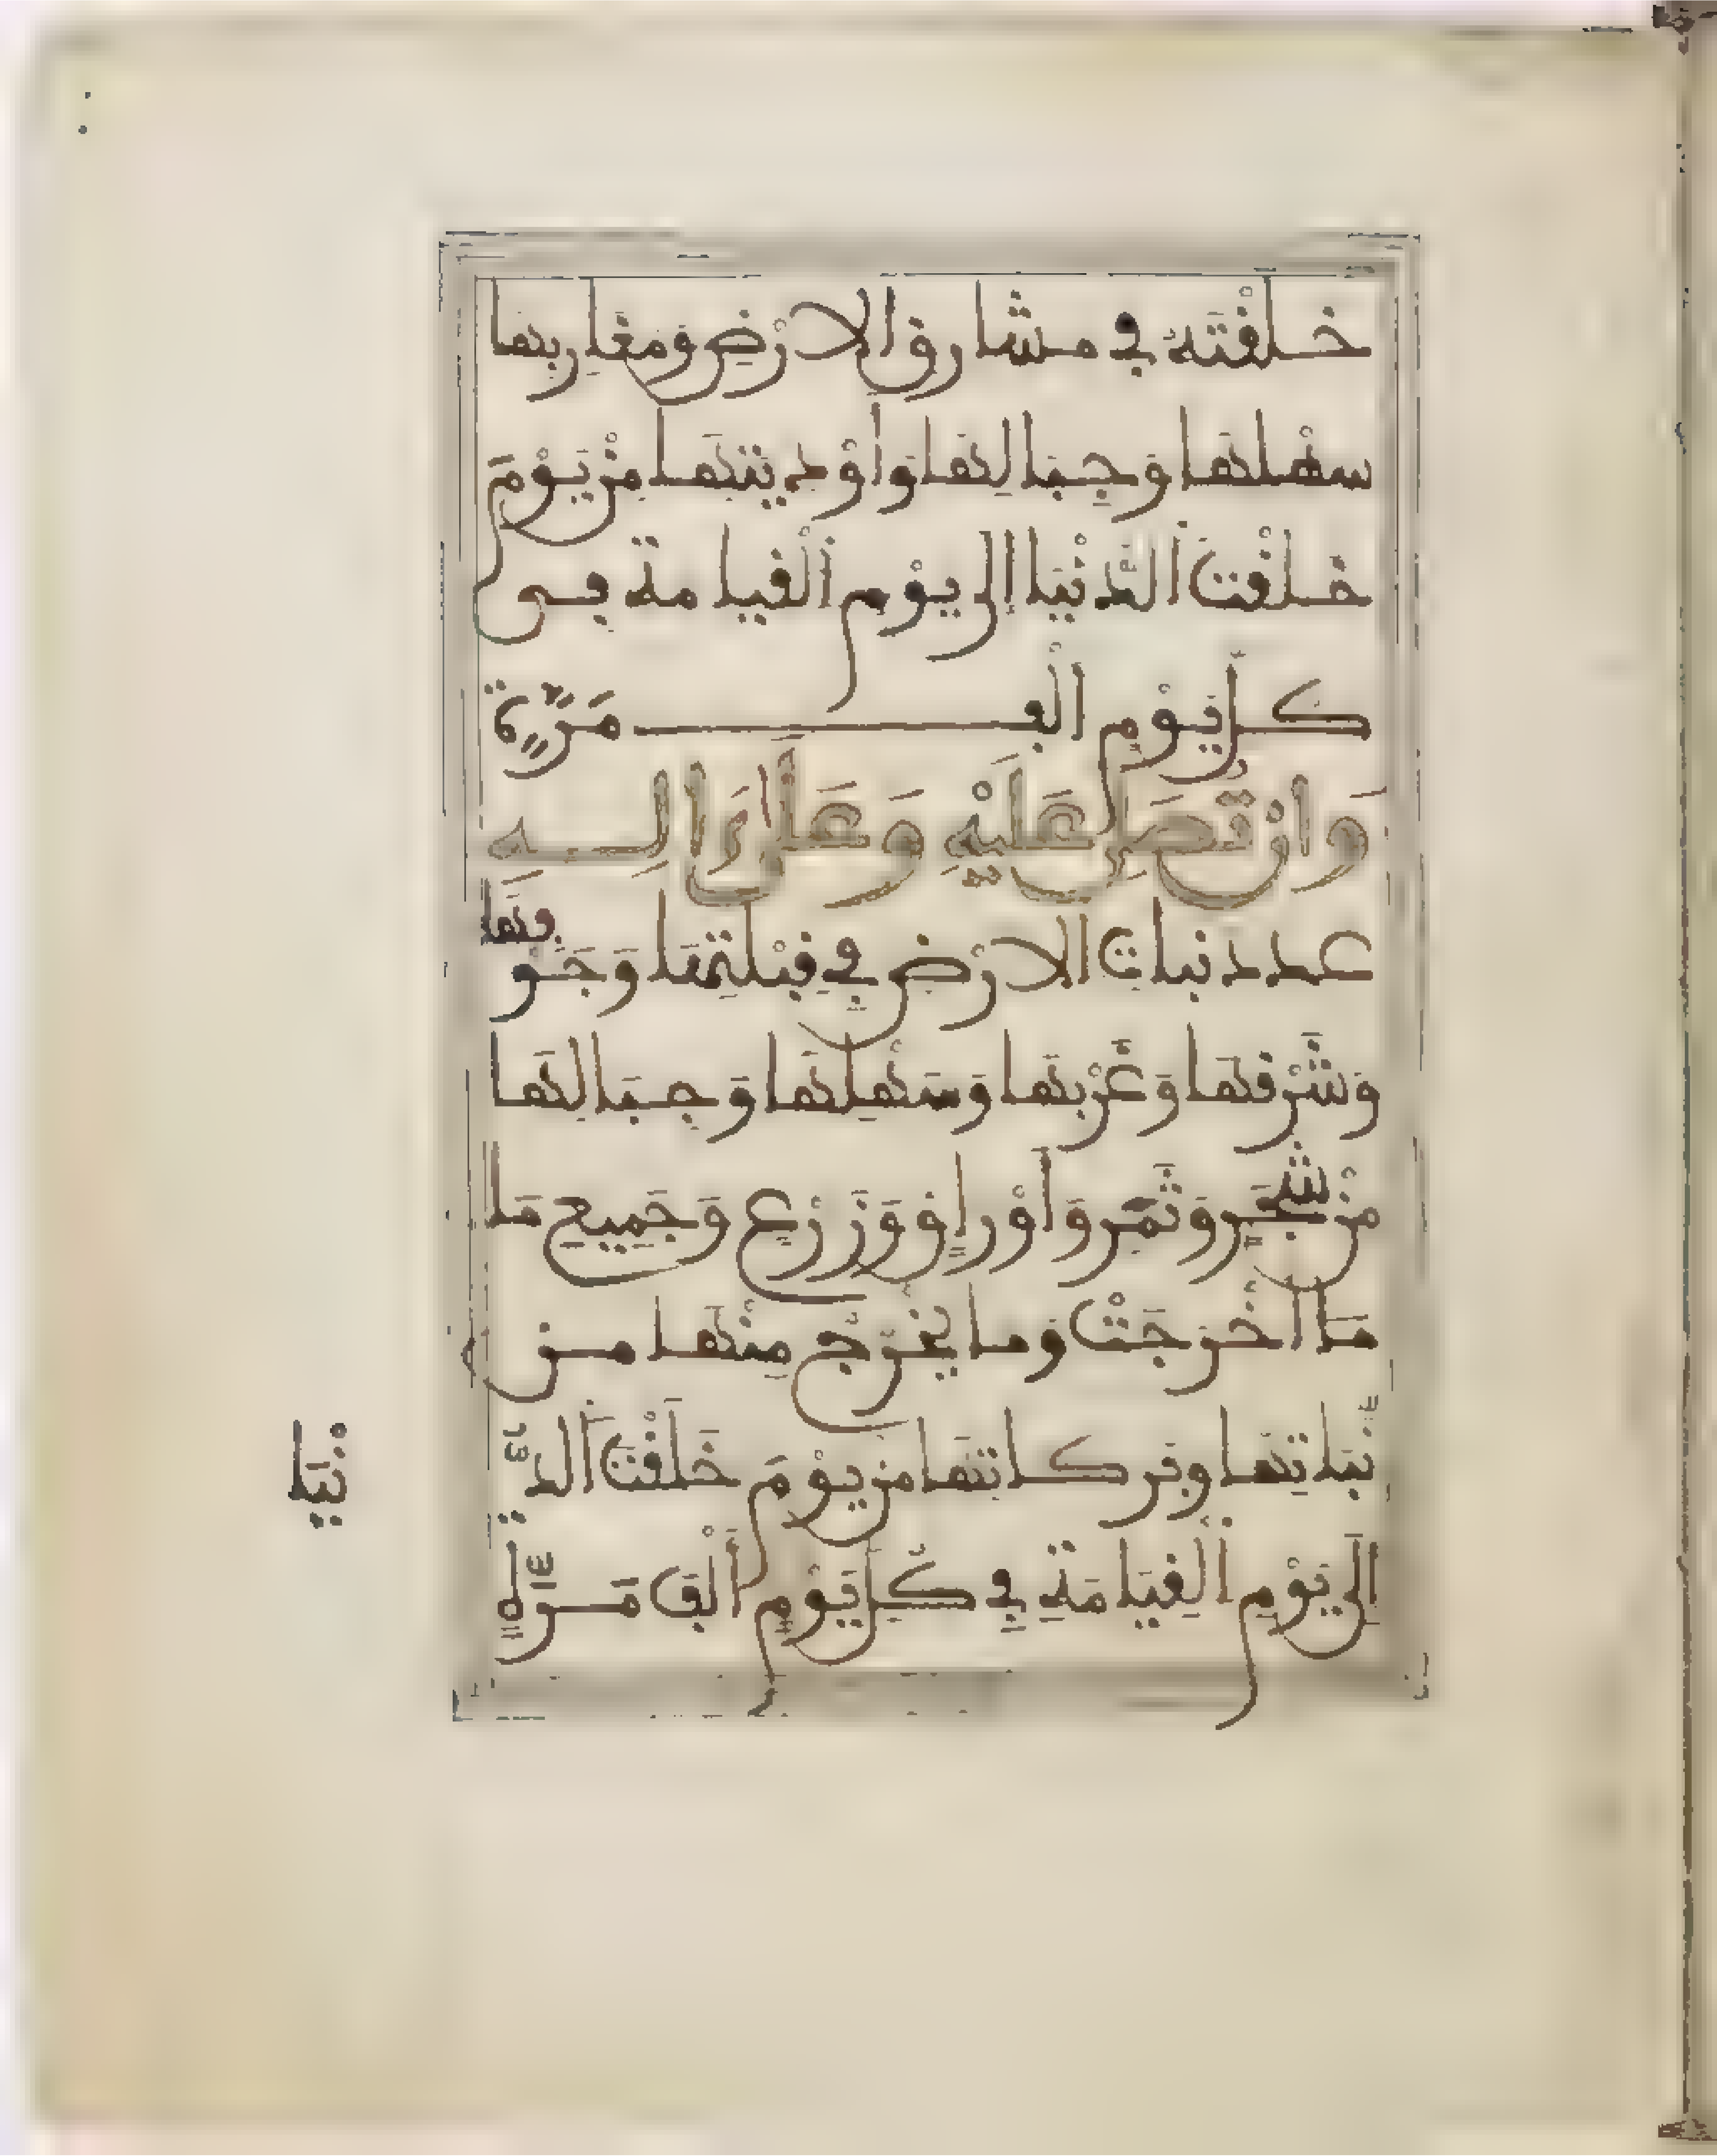 خلقته في مشارق الارض ومغاربها
سهلها وجبالها وأوديتها من يوم
خلقت الدنيا إلى يوم القيامة في
كل يوم الف مرة
وان تصلي عليه وعلى اله
عدد نبات الارض في قبلتها وجوفها
وشرقها وغربها وسهلها وجبالها
من شجر وثمر وأوراق وزرع وجميع ما
ما اخرجت وما يخرج منها من
نباتها وبركاتها من يوم خلقت الد
نيا
الى يوم القيامة في كل يوم ألف مرة